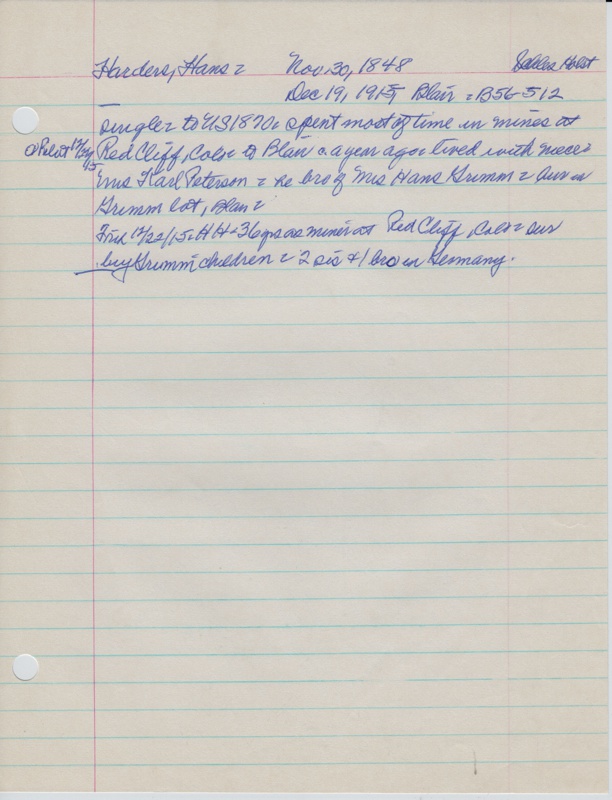 Harders, Hans = Nov. 30, 1848 Holst
Dec 19, 1915 Blair = B56-512
— single = to US 1870 = spent most of time in mines at
Pilot 12/22/15 Red Cliff, Colo = to Blair c. a year ago = lived with niece =
Mrs Karl Peterson = he bro of Mrs Hans Grimm = bur in
Grimm lot, Blair =
Trib 12/22/15 = HH = 36 yrs as miner at Red Cliff, Colo = sur
by Grimm children = 2 sis & 1 bro in Germany.